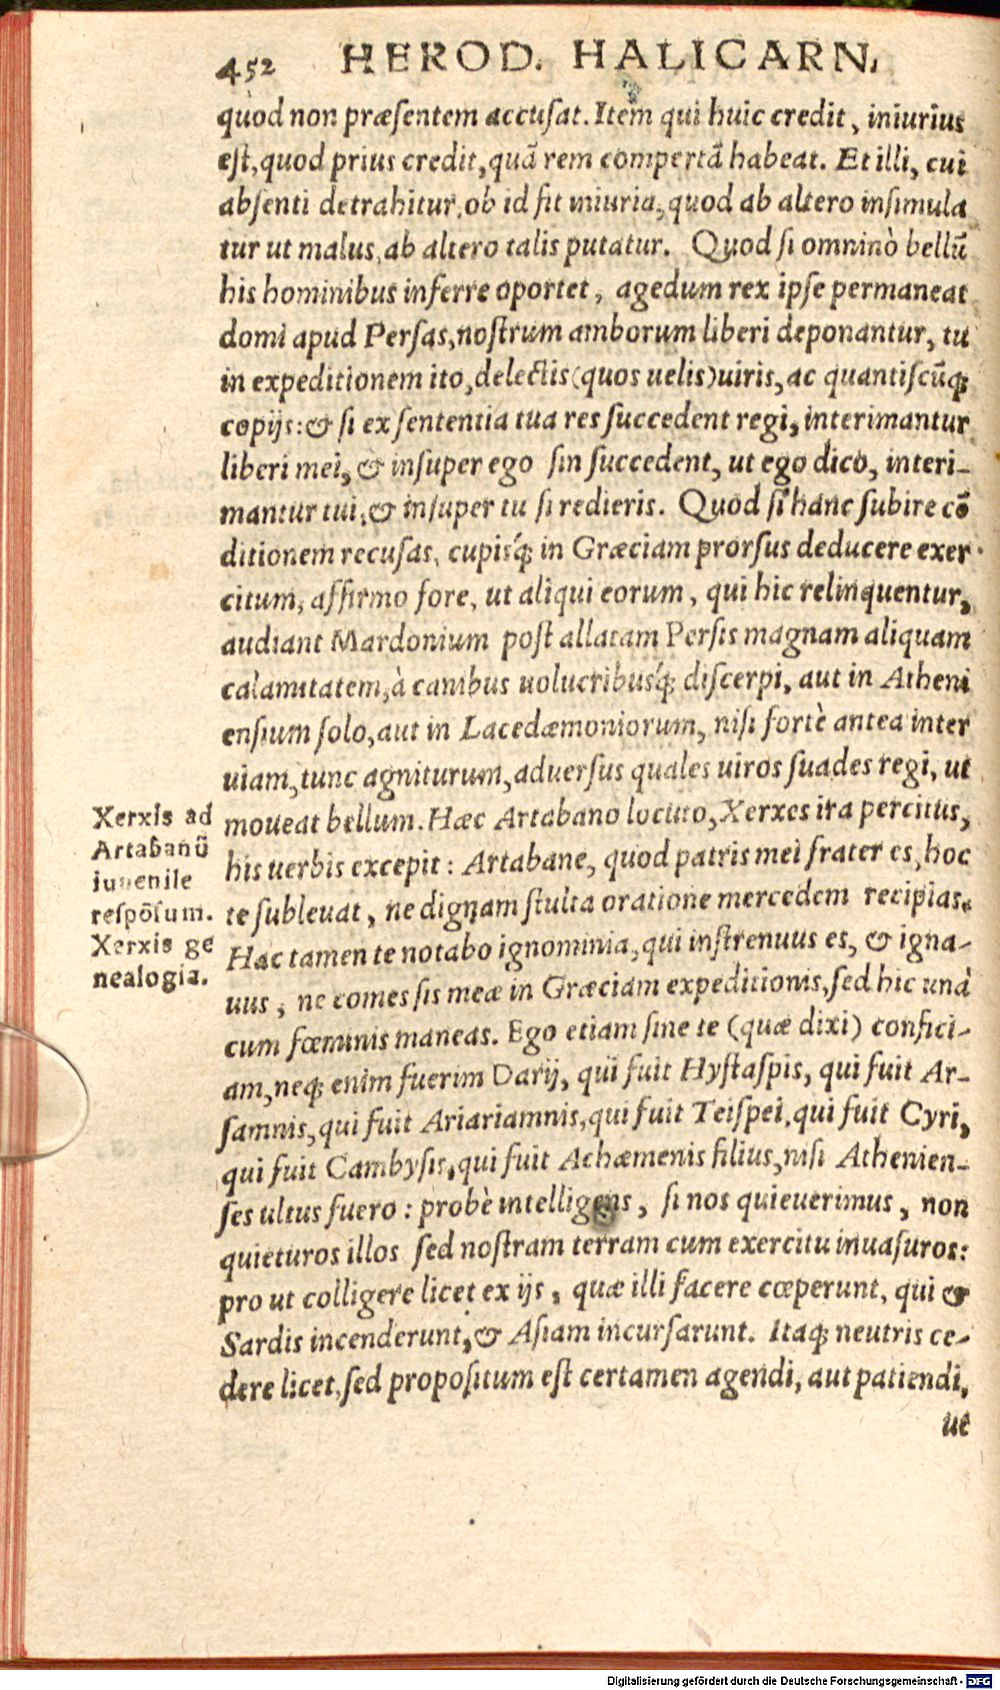 452 HEROD. HALICARN.
quod non præſentem accuſat. Item qui huic credit, iniurius
eſt, quod prius credit, quā rem compertā habeat. Et illi, cui
abſenti detrahitur, ob id fit iniuria, quod ab altero inſimula
tur ut malus, ab altero talis putatur. Quod ſi omninò bellū
his hominibus inferre oportet, agedum rex ipſe permaneat
domi apud Perſas, noſtrum amborum liberi deponantur, tu
in expeditionem ito, delectis (quos uelis) uiris, ac quantiſcūq́;
copijs: & ſi ex ſententia tua res ſuccedent regi, interimantur
liberi mei, & inſuper ego ſin ſuccedent, ut ego dico, interi-
mantur tui, & inſuper tu ſi redieris. Quod ſi hanc ſubire cō
ditionem recuſas, cupisq́; in Græciam prorſus deducere exer
citum, affirmo fore, ut aliqui eorum, qui hic relinquentur,
audiant Mardonium poſt allatam Perſis magnam aliquam
calamitatem, à canibus uolucribusq́; diſcerpi, aut in Atheni
enſium ſolo, aut in Lacedæmoniorum, niſi fortè antea inter
uiam, tunc agniturum, aduerſus quales uiros ſuades regi, ut
moueat bellum. Hæc Artabano locuto, Xerxes ira percitus,
his uerbis excepit: Artabane, quod patris mei frater es, hoc
te ſubleuat, ne dignam ſtulta oratione mercedem recipias.
Hac tamen te notabo ignominia, qui inſtrenuus es, & igna-
uus, ne comes ſis meæ in Græciam expeditionis, ſed hic unà
cum fœminis maneas. Ego etiam ſine te (quæ dixi) confici-
am, neq; enim fuerim Darij, qui fuit Hyſtaſpis, qui fuit Ar-
ſamnis, qui fuit Ariariamnis, qui fuit Teiſpei, qui fuit Cyri,
qui fuit Cambyſis, qui fuit Achæmenis filius, niſi Athenien-
ſes ultus fuero: probè intelligens, ſi nos quieuerimus, non
quieturos illos ſed noſtram terram cum exercitu inuaſuros:
pro ut colligere licet ex ijs, quæ illi facere cœperunt, qui &
Sardis incenderunt, & Aſiam incurſarunt. Itaq; neutris ce-
dere licet, ſed propoſitum eſt certamen agendi, aut patiendi,
ut
Xerxis ad
Artabanū
iuuenile
reſpōſum.
Xerxis ge
nealogia.
Digitalisierung gefördert durch die Deutsche Forschungsgemeinschaft - DFG